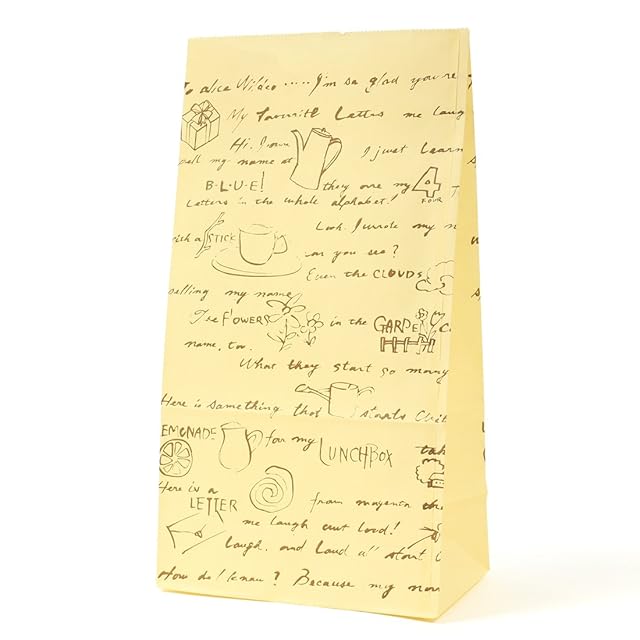 To alice Wildeo ..... I'm so glad you're
My favourite Letters me laug
Hi. I'm I just learn
spell my name at
B·L·U·E! they are my 4 FOUR
Letters in the whole alphabet!
Look. I wrote my n
with a STICK
can you see?
Even the CLOUDS
spelling my name
The FLOWERS in the GARDEN
name, too.
What they start so many
Here is something that starts
LEMONADE for my LUNCHBOX tak
Here is a LETTER from magenta the
me laugh out loud!
laugh, and Loud all start
How do I know? Because my nam